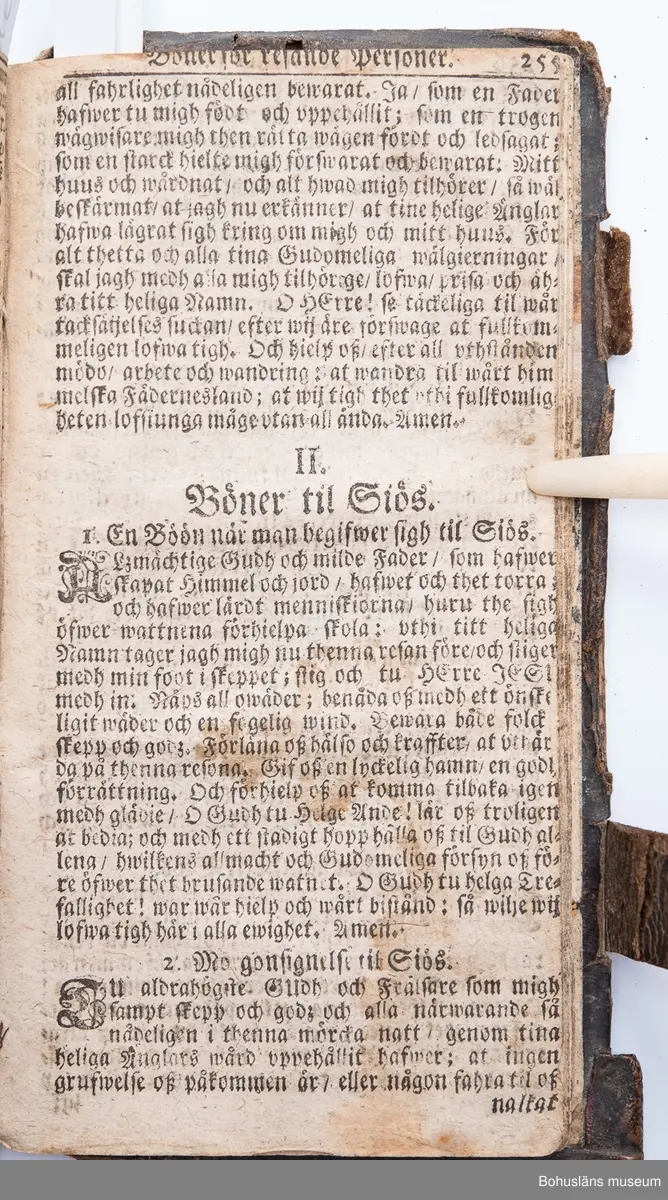 Böner för resande Personer. 255
all fahrlighet nådeligen bewarat. Ja/ som en Fader
hafwer tu migh födt och vppehållit; som en trogen
wägwisare migh then rätta wägen fördt och ledsagat;
som en starck hielte migh förswarat och bewarat. Mitt
huus och wårdnat/ och alt hwad migh tilhörer/ så wäl
beskärmat/ at jagh nu erkänner/ at tine helige Änglar
hafwa lägrat sigh kring om migh och mitt huus. För
alt thetta och alla tina Gudomeliga wälgierningar/
skal jagh medh alla migh tilhörige/ lofwa/ prisa och äh-
ra titt heliga Namn. O HErre! se täckeliga til wår
tacksäijelses suckan/ efter wij äre förswage at fullkom-
meligen lofwa tigh. Och hielp oß/ efter all vthstånden
mödo/ arbete och wandring: at wandra til wårt him
melska Fädernesland; at wij tigh thet vthi fullkomlig
heten lofsiunga måge vtan all ända. Amen.
II.
Böner til Siös.
1. En Böön när man begifwer sigh til Siös.
ALzmächtige Gudh och milde Fader/ som hafwer
skapat Himmel och jord/ hafwet och thet torra;
och hafwer lärdt menniskiorna/ huru the sigh
öfwer wattnena förhielpa skola: vthi titt heliga
Namn tager jagh migh nu thenna resan före/ och stiger
medh min foot i skeppet; stig och tu HErre JESU
medh in. Näps all owäder; benåda oß medh ett önske
ligit wäder och en fogelig wind. Bewara både folck
skepp och godz. Förläna oß hälso och kraffter/ at vthär
da på thenna resona. Gif oß en lyckelig hamn/ en godh
förrättning. Och förhielp oß at komma tilbaka igen
medh glädie/ O Gudh tu Helge Ande! lär oß troligen
at bedia; och medh ett stadigt hopp hålla oß til Gudh al-
lena/ hwilkens allmacht och Gudomeliga försyn oß fö-
re öfwer thet brusande watnet. O Gudh tu helga Tre-
fallighet! war wår hielp och wårt bistånd: så wilje wij
lofwa tigh här i alla ewighet. Amen.
2. Morgonsignelse til Siös.
DU aldrahögste Gudh och Frälsare som migh
sampt skepp och godz och alla närwarande så
nådeligen i thenna mörcka natt/ genom tina
heliga Änglars wård vppehållit hafwer; at ingen
grufwelse oß påkommen är/ eller någon fahra til oß
nalkat
Bohusläns museum